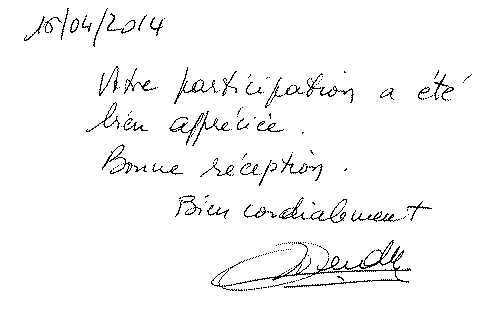 15/04/2014
Votre participation a été
bien appréciée.
Bonne réception.
Bien cordialement